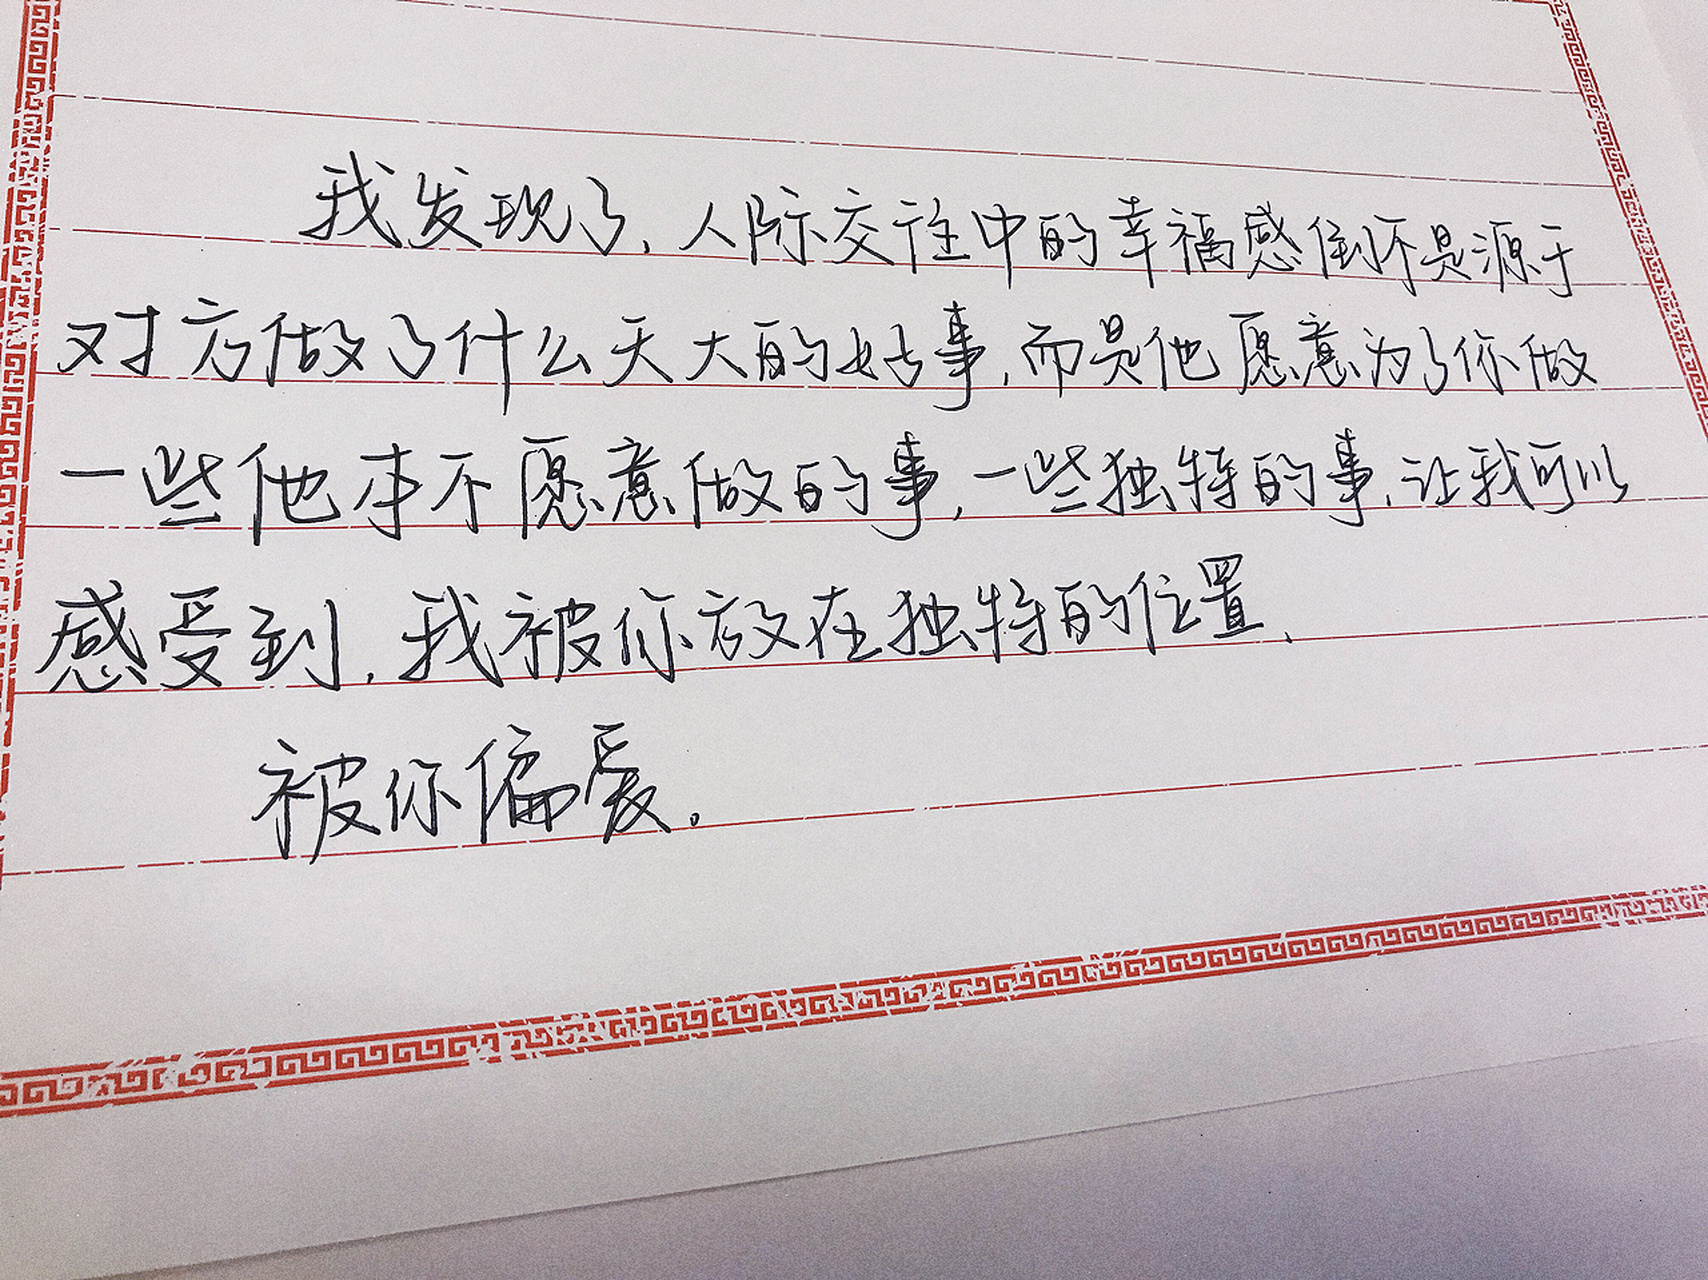 我发现了，人际交往中的幸福感倒不是源于
对方做了什么天大的好事，而是他愿意为了你做
一些他本不愿意做的事，一些独特的事，让我可以
感受到，我被你放在独特的位置、
被你偏爱。